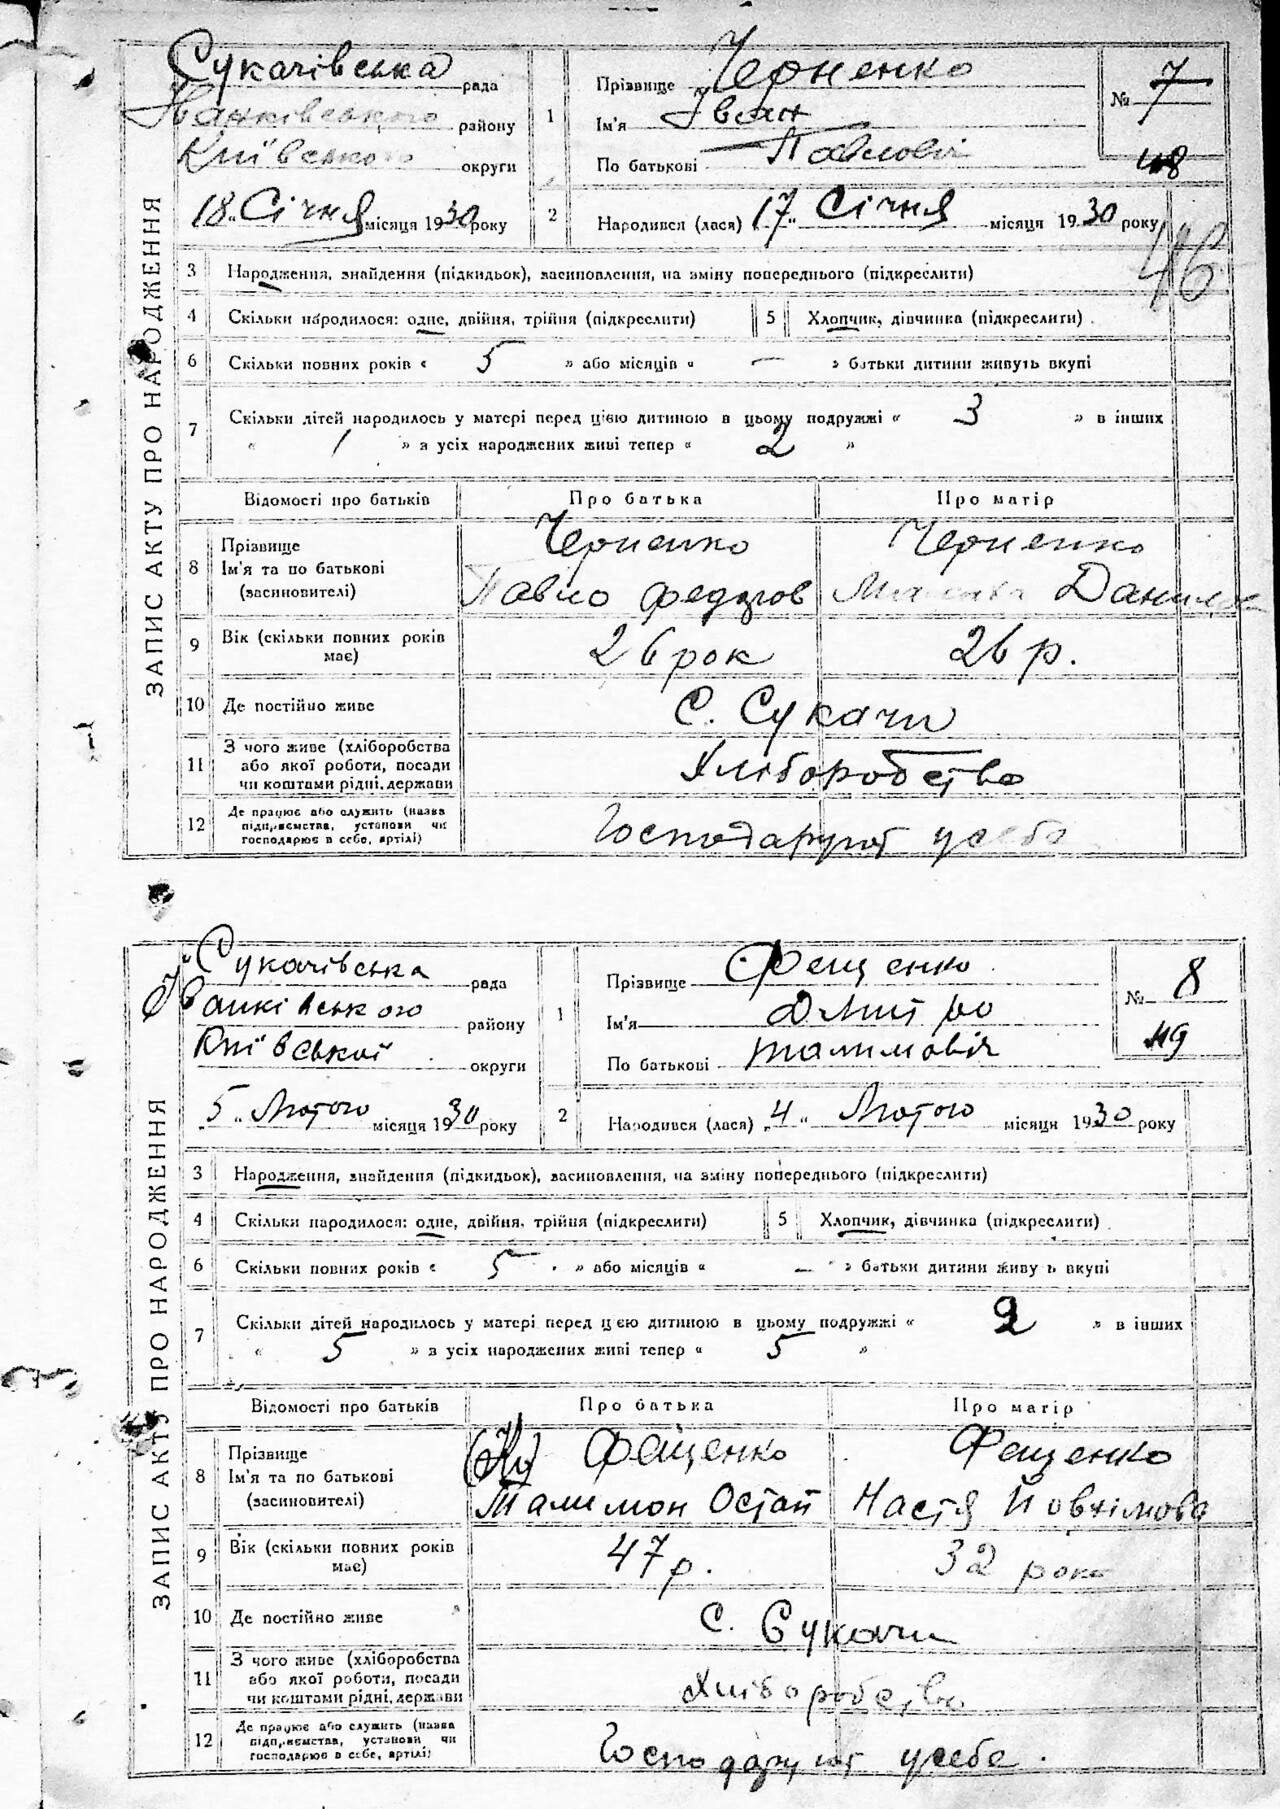 ЗАПИС АКТУ ПРО НАРОДЖЕННЯ
Сукачівська рада
Іванківського району
Київського округи
18 „ Січня місяця 1930 року
1 Прізвище Черненко
Ім'я Іван
По батькові Павлович
№ 7
48
2 Народився (лася) 17 „ Січня місяця 1930 року
46
3 Народження, знайдення (підкидьок), засиновлення, на зміну попереднього (підкреслити)
4 Скільки народилося: одне, двійня, трійня (підкреслити)
5 Хлопчик, дівчинка (підкреслити)
6 Скільки повних років « 5 » або місяців « — » батьки дитини живуть вкупі
7 Скільки дітей народилось у матері перед цією дитиною в цьому подружжі « 3 » в інших
« 1 » з усіх народжених живі тепер « 2 »
Відомості про батьків Про батька Про матір
8 Прізвище Черненко Черненко
Ім'я та по батькові Павло Федоров Данилов
(засиновителі)
9 Вік (скільки повних років має) 26 рок 26 р.
10 Де постійно живе С. Сукачи
11 З чого живе (хліборобства або якої роботи, посади чи коштами рідні, держави Хліборобство
12 Де працює або служить (назва підприємства, установи чи господарює в себе, артілі) Господарюют усебе
ЗАПИС АКТУ ПРО НАРОДЖЕННЯ
Сукачівська рада
Іванківського району
Київської округи
5 „ Лютого місяця 1930 року
1 Прізвище Фещенко
Ім'я Дмитро
По батькові Талимовіч
№ 8
49
2 Народився (лася) 4 „ Лютого місяця 1930 року
3 Народження, знайдення (підкидьок), засиновлення, на зміну попереднього (підкреслити)
4 Скільки народилося: одне, двійня, трійня (підкреслити)
5 Хлопчик, дівчинка (підкреслити)
6 Скільки повних років « 5 » або місяців « — » батьки дитини живу ь вкупі
7 Скільки дітей народилось у матері перед цією дитиною в цьому подружжі « 2 » в інших
« 5 » з усіх народжених живі тепер « 5 »
Відомості про батьків Про батька Про матір
8 Прізвище Фещенко Фещенко
Ім'я та по батькові Талимон Остап Настя Йовхімова
(засиновителі)
9 Вік (скільки повних років має) 47 р. 32 рок
10 Де постійно живе С. Сукачи
11 З чого живе (хліборобства або якої роботи, посади чи коштами рідні, держави Хліборобство
12 Де працює або служить (назва підприємства, установи чи господарює в себе, артілі) Господарюют усебе.